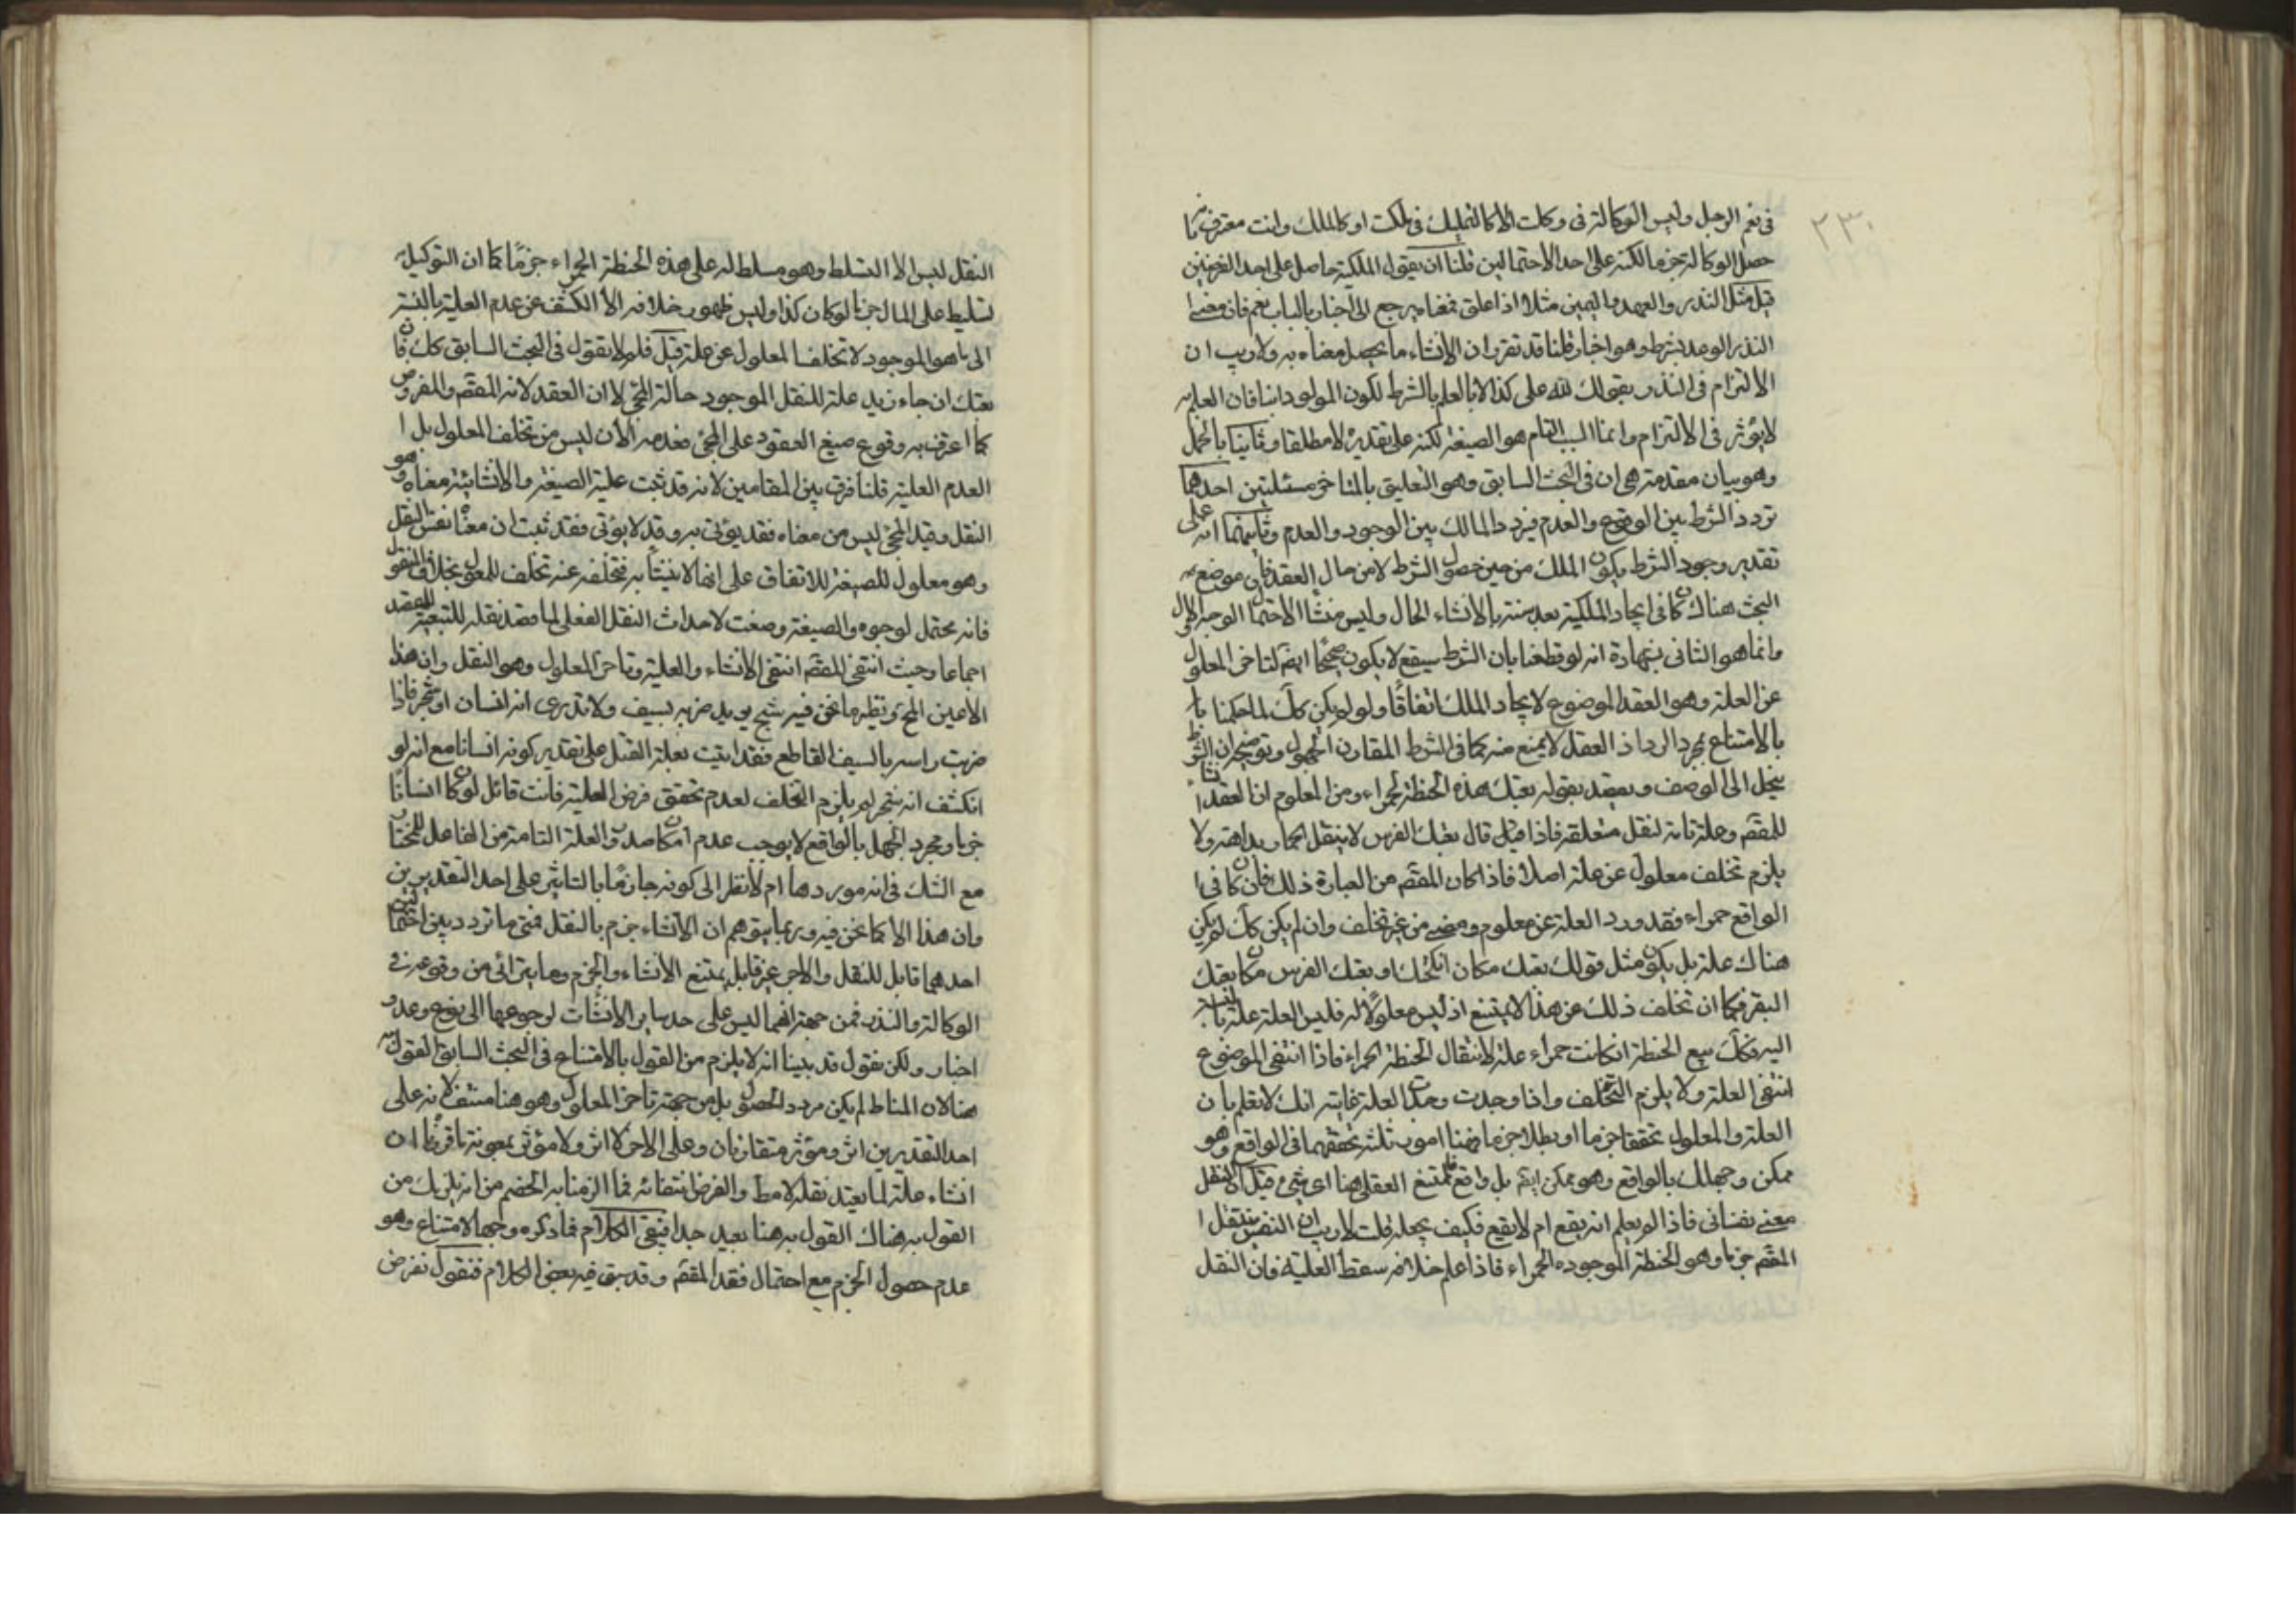 ٢٣٠
في نعم الرجل وليس الوكالة في وكلت الا كالتمليك في ملكت او كالملك وانت معترف
حصل الوكالة جزما لكنه على احد الاحتمالين قلنا ان يقول الملكية حاصل على احد الفرضين
قيل مثل النذر والعهد واليمين مثلا اذا علق فمعناه يرجع الى اخبار بالباب نعم فان معنى
النذر الوعد بشرط وهو اخبار قلنا قد تقرر ان الانشاء ما يحصل معناه به ولا ريب ان
الالتزام في النذر بقولك لله على كذا لا بالعلم بالشرط لكون المولود ابنا فان العلم
لا يؤثر في الالتزام وانما السبب التام هو الصيغة لكنه على تقدير لا مطلقا وثانيا بالحل
وهو بيان مقدمة هي ان في البحث السابق وهو التعليق بالمتاخر مسئلتين احدهما
تردد الشرط بين الوقوع والعدم فيردد المالك بين الوجود والعدم وثانيهما انه على
تقدير وجود الشرط يكون الملك من حين حصول الشرط لا من حال العقد فان موضع
البحث هناك كما في ايجاد الملكية بعد سنة بالانشاء الحال وليس منشا الاحتمال الوجه الاول
وانما هو الثاني بشهادة انه لو قطعنا بان الشرط سيقع لا يكون صحيحا ايضا لتاخر المعلول
عن العلة وهو العقد الموضوع لايجاد الملك اتفاقا ولو لم يكن كك لما حكمنا با
بالامتناع بمجرد الرد اذ العقل لا يمنع منه كما في الشرط المقارن المجهول وتوضيحه ان الشرط
ينحل الى الوصف و بقوله بعتك هذه الحنظة الحمراء ومن المعلوم ان العقد انشاء
للمقيم وعلة تامة لنقل متعلقه فاذا قيل قال بعتك الفرس لا ينتقل الحمار بداهة ولا
يلزم تخلف معلول عن علة اصلا فاذا كان المقيم من العبارة ذلك فان كان في ا
الواقع حمراء فقد ورد العلة عن معلوم ومضى من غير تخلف وان لم يكن كك لم يكن
هناك علة بل يكون مثل قولك بعتك مكان انكحتك او بعتك الفرس مكان بعتك
البقر فكما ان تخلف ذلك عن هذا لا يمتنع اذ ليس معلولا له فليس العلة علة بالنسبة
اليه فكك بيع الحنطة ان كانت حمراء علة لانتقال الحنطة الحمراء فاذا انتفى الموضوع
انتفى العلة ولا يلزم التخلف واذا وجدت وجدت العلة غايته انك لا تعلم بان
العلة والمعلول تحققا جزما او بطلا جزما فهنا امور ثلثة تحققهما في الواقع وهو
ممكن وجهلك بالواقع وهو ممكن ايضا بل واقع فلا يمتنع العقل هنا اي شيء قيل ان النقل
معنى نفساني فاذا لم يعلم انه يقع ام لا يقع فكيف يجعله قلت لا ريب ان النفس ينتقل ا
المقيم جزما وهو الحنطة الموجودة الحمراء فاذا علم خلافه سقط العلية فان النقل
النقل ليس الا التسلط وهو مسلط له على هذه الحنظة الحمراء جزما كما ان التوكيل
تسليط على المال جزما لو كان كذا وليس ظهور خلافه الا الكشف عن عدم العلية بالنسبة
الى ما هو الموجود لا تخلف المعلول عن علة قيل فلم لا يقول في البحث السابق كك فان
بعتك ان جاء زيد علة للنقل الموجود حالة المجئ لا ان العقد لانه المقيم والمفروض
كما اعترف به وقوع صيغ العقود على المجئ فعدمه الان ليس من تخلف المعلول بل ا
العدم العلية قلنا فرق بين المقامين لانه قد ثبت علية الصيغة والانشائية معناه وهو
النقل وقيد المجئ ليس من معناه فقد يؤتى به وقد لا يؤتى فقد ثبت ان معناه نفس النقل
وهو معلول للصيغة للاتفاق على انها لانشائه فتخلفه عنه تخلف للمعلول بخلاف المنقول
فانه محتمل لوجوه والصيغة وضعت لاحداث النقل الفعلي لما قصد نقله للتبعية للعقد
اجماعا وحيث انتفى المقيم انتفى الانشاء والعلية وتاخر المعلول وهو النقل وان هذا
الا عين المجئ ونظير ما نحن فيه شبح يريد ضربه بسيف ولا تدرى انه انسان او شجر فاذا
ضربت راسه بالسيف القاطع فقد اتيت بعلة القتل على تقدير كونه انسانا مع انه لو
انكشف انه شجر لم يلزم التخلف لعدم تحقق فرض العلية فانت قائل لو كان انسانا
جزما ومجرد الجهل بالواقع لا يوجب عدم امكان صدور العلة التامة من الفاعل المختار
مع الشك في انه موردها ام لا نظرا الى كونه جازما بالتاثير على احد التقديرين
وان هذا الا كما نحن فيه وربما يتوهم ان الانشاء جزم بالنقل فمتى ما تردد بين احتمالين
احدهما قابل للنقل والاخر غير قابل يمتنع الانشاء والجزم وما يترائى من وقوعه في
الوكالة والنذر فمن جهة انهما ليس على حد ساير الانشاات لرجوعها الى نوع وعد و
اخبار ولكن نقول قد بينا انه لا يلزم من القول بالامتناع في البحث السابق القول به
هنا لان المناط لم يكن مردد الحصول بل من جهة تاخر المعلول وهو هنا منتف لانه على
احد التقديرين اثر ومؤثر متقارنان وعلى الاخر لا اثر ولا مؤثر بمعونة ما قررنا ان
انشاء علة لما يعتد نقله لا مط والفرض انتفائه فما الزمنا به الخصم من انه يلزمك من
القول به هناك القول به هنا بعيد جدا فبقى الكلام فما ذكره وجها لامتناع وهو
عدم حصول الجزم مع احتمال فقد المقيم وقد سبق فيه بعض الكلام فنقول نفرض